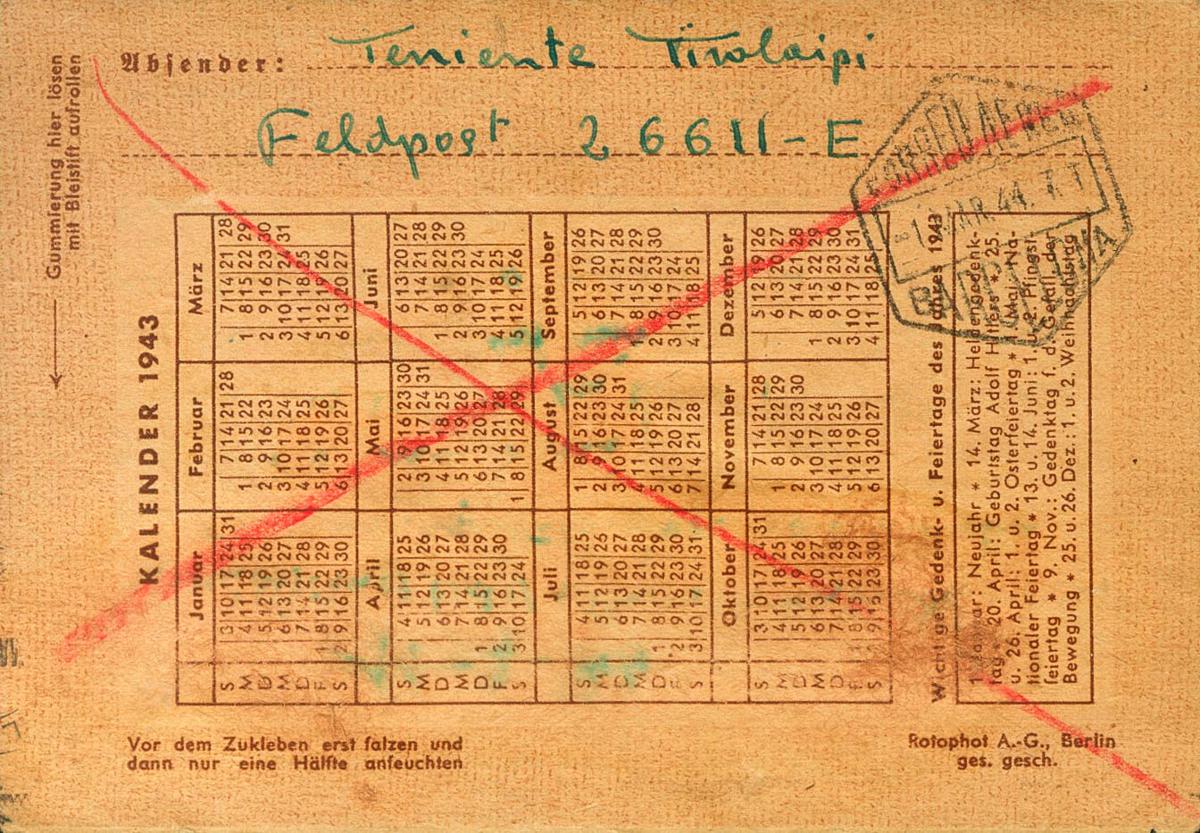 Absender: Teniente
Feldpost 26611-E
CORREO AEREO
BARCELONA
Gummierung hier lösen
mit Bleistift aufrollen
KALENDER 1943
Januar Februar März
S 3 10 17 24 31 7 14 21 28 7 14 21 28
M 4 11 18 25 1 8 15 22 1 8 15 22 29
D 5 12 19 26 2 9 16 23 2 9 16 23 30
M 6 13 20 27 3 10 17 24 3 10 17 24 31
D 7 14 21 28 4 11 18 25 4 11 18 25
F 1 8 15 22 29 5 12 19 26 5 12 19 26
S 2 9 16 23 30 6 13 20 27 6 13 20 27
April Mai Juni
S 4 11 18 25 2 9 16 23 30 6 13 20 27
M 5 12 19 26 3 10 17 24 31 7 14 21 28
D 6 13 20 27 4 11 18 25 1 8 15 22 29
M 7 14 21 28 5 12 19 26 2 9 16 23 30
D 1 8 15 22 29 6 13 20 27 3 10 17 24
F 2 9 16 23 30 7 14 21 28 4 11 18 25
S 3 10 17 24 1 8 15 22 29 5 12 19 26
Juli August September
S 4 11 18 25 1 8 15 22 29 5 12 19 26
M 5 12 19 26 2 9 16 23 30 6 13 20 27
D 6 13 20 27 3 10 17 24 31 7 14 21 28
M 7 14 21 28 4 11 18 25 1 8 15 22 29
D 1 8 15 22 29 5 12 19 26 2 9 16 23 30
F 2 9 16 23 30 6 13 20 27 3 10 17 24
S 3 10 17 24 31 7 14 21 28 4 11 18 25
Oktober November Dezember
S 3 10 17 24 31 7 14 21 28 5 12 19 26
M 4 11 18 25 1 8 15 22 29 6 13 20 27
D 5 12 19 26 2 9 16 23 30 7 14 21 28
M 6 13 20 27 3 10 17 24 1 8 15 22 29
D 7 14 21 28 4 11 18 25 2 9 16 23 30
F 1 8 15 22 29 5 12 19 26 3 10 17 24 31
S 2 9 16 23 30 6 13 20 27 4 11 18 25
Wichtige Gedenk- u. Feiertage des Jahres 1943
1. Januar: Neujahr * 14. März: Heldengedenk-
tag * 20. April: Geburtstag Adolf Hitlers * 25.
u. 26. April: 1. u. 2. Osterfeiertag * 1. Mai: Na-
tionaler Feiertag * 13. u. 14. Juni: 1. u. 2. Pfingst-
feiertag * 9. Nov.: Gedenktag f. d. Gefall. der
Bewegung * 25. u. 26. Dez.: 1. u. 2. Weihnachtstag
Vor dem Zukleben erst falzen und
dann nur eine Hälfte anfeuchten
Rotophot A.-G., Berlin
ges. gesch.